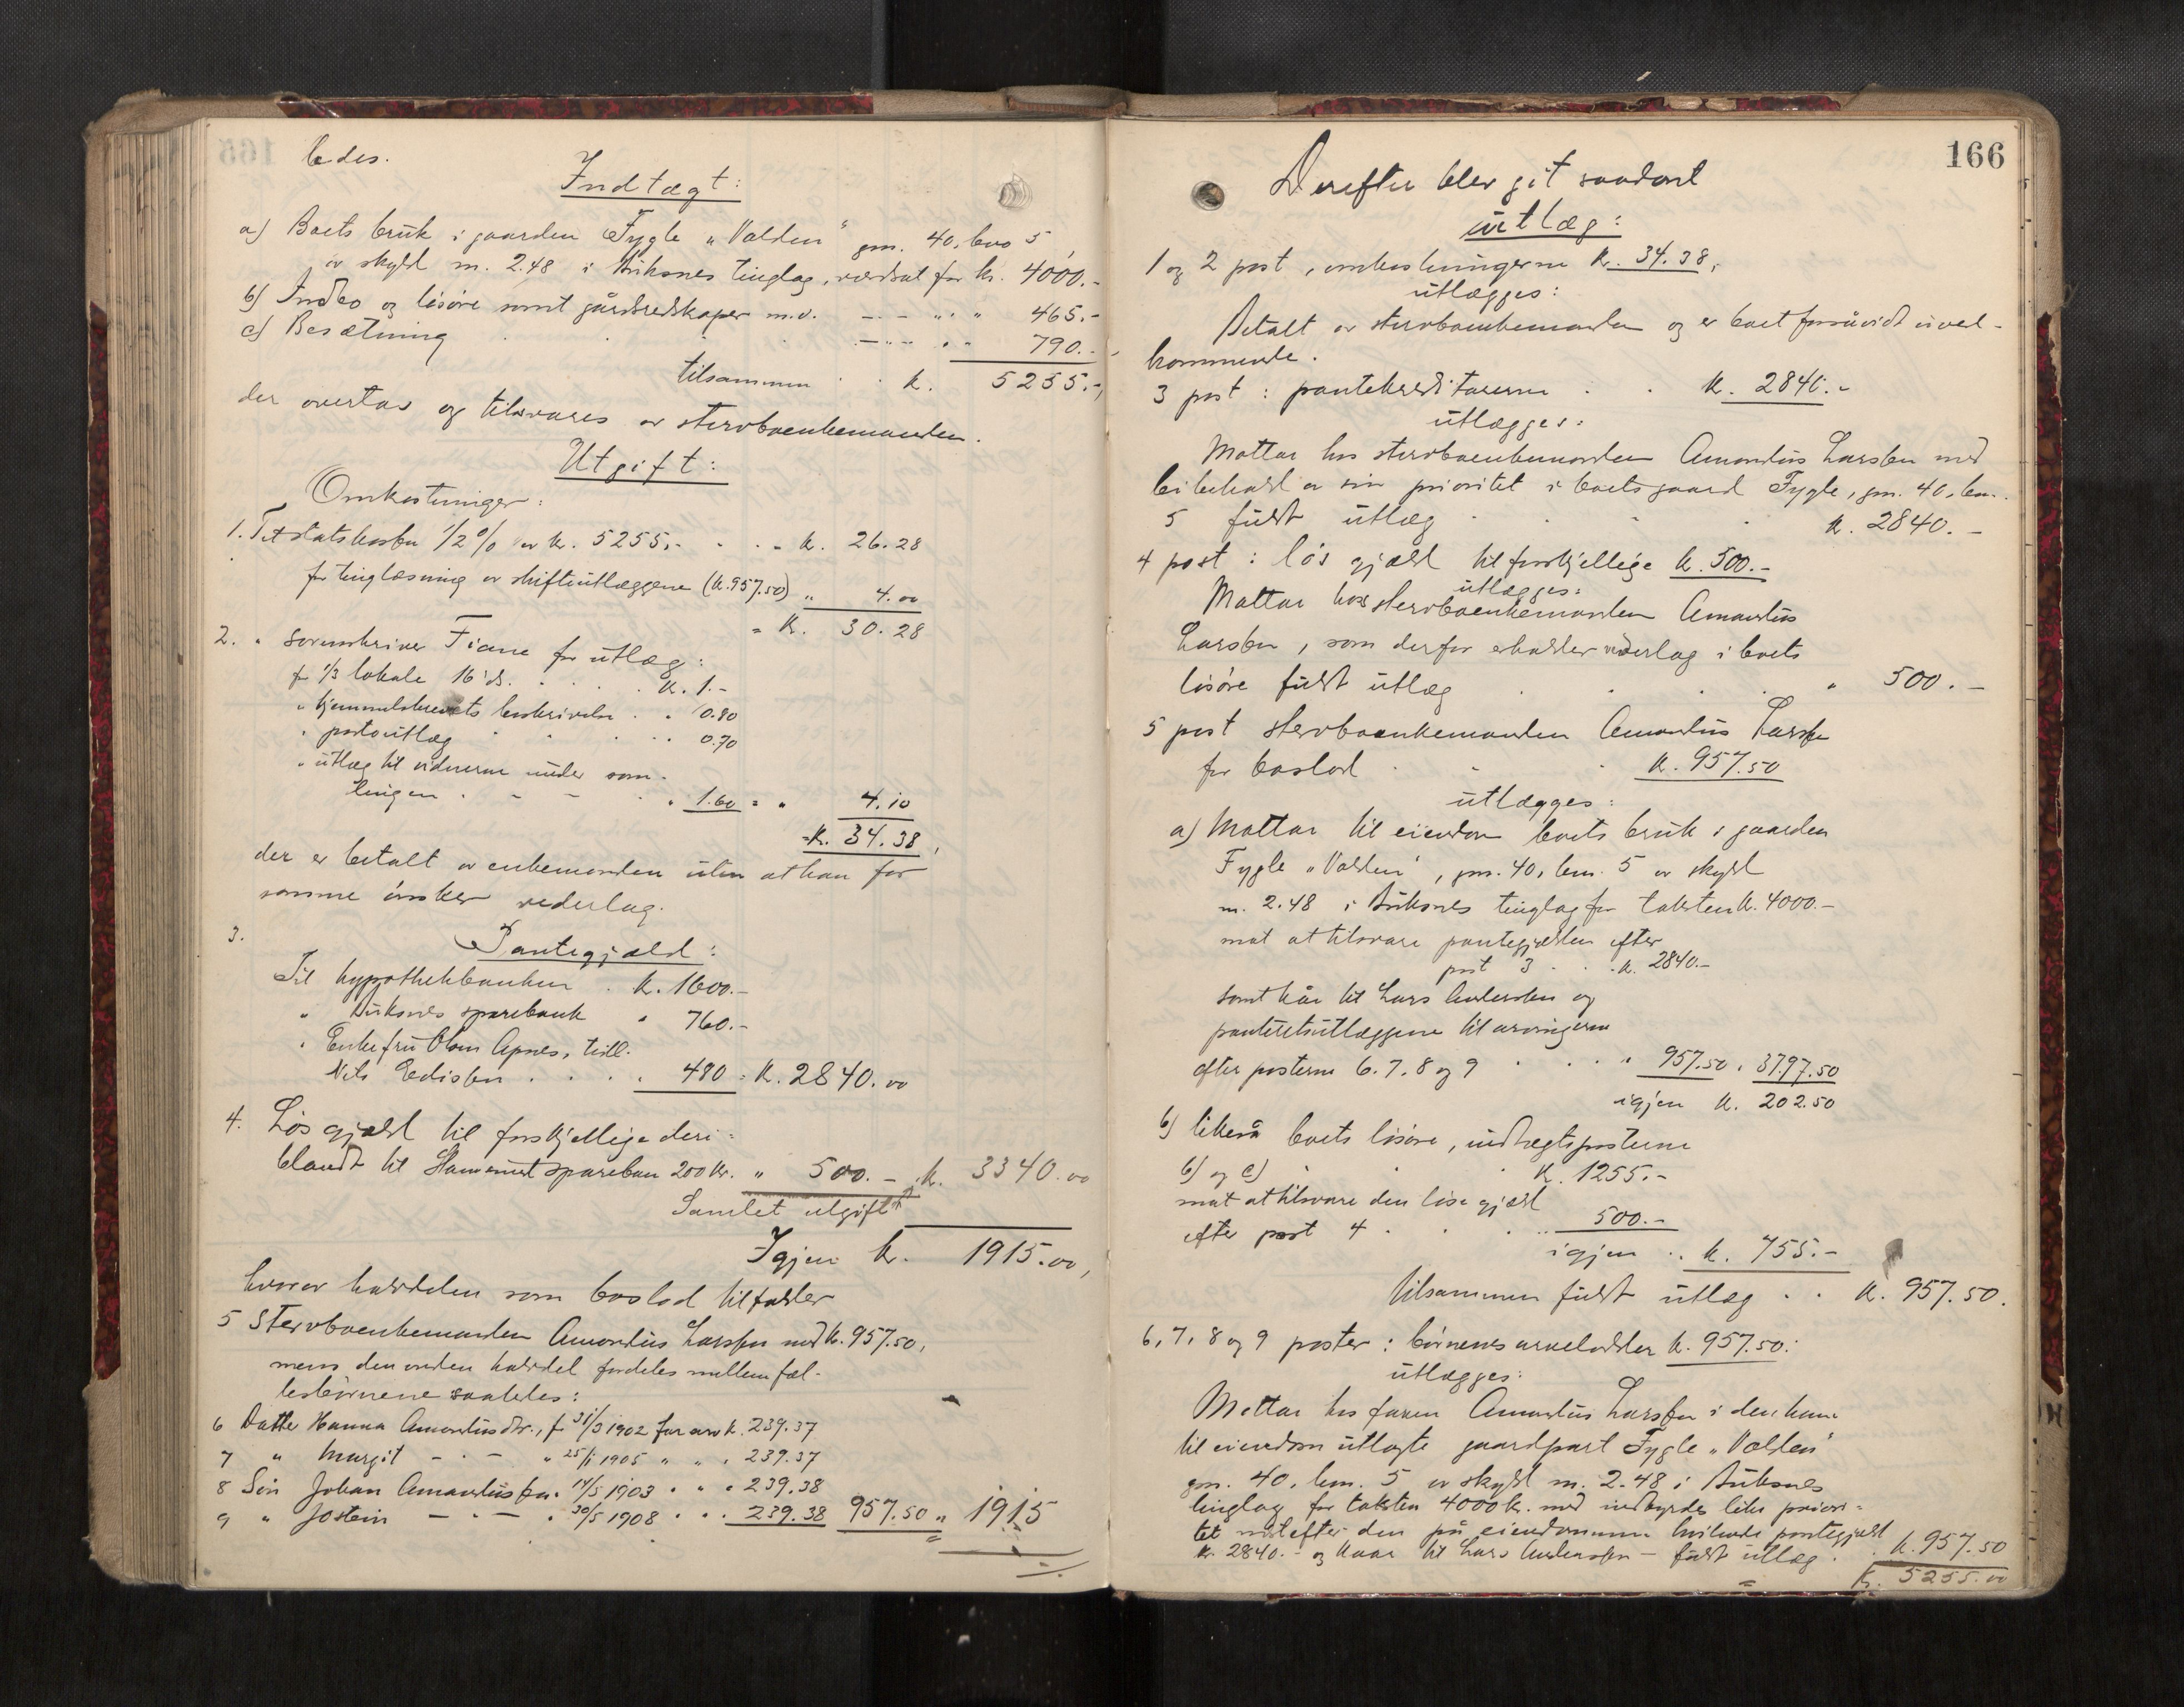 165
ledes.
Indtægt:
a) Boets bruk i gaarden Fygle "Valden" gm. 40, bno 5
av skyld m. 2.48 i Buksnes tinglag, værdsat for kr. 4000.-
b) Indbo og løsøre samt gårdsredskaper m.v. — - " " 465.-
c) Besætning . . . — - - " " 790.-
tilsammen . . k. 5255.-,
der overtas og tilsvares av stervboenkemanden.
Utgift:
Omkostninger:
1. Til statskassen 1/2 % av kr. 5255.- . . k. 26.28
for tinglæsning av skifteutlæggene (k. 957.50) " 4.00
= K. 30.28
2. " sorenskriver Fiane for utlæg:
for 1/3 lokale 16 ds. . . . K. 1.-
" hjemmelsbrevets beskrivelse . " 0.80
" portoutlæg . . . . 0.70
" utlæg til vidnerne under sam-
lingen . - - . " 1.60 = " 4.10
= k. 34.38,
der er betalt av enkemanden uten at han for
samme ønsker vederlag.
3. Pantegjæld:
Til hypothekbanken . k. 1600.-
" Buksnes sparebank " 760.-
" Enkefru Olsen Apnes, till.
Nils Edissen . . . . 480 = K. 2840.00
4. Løs gjæld til forskjellige deri-
blandt til Hammerst spareban 200 kr. " 500.- . k. 3340.00
Samlet utgift
Igjen k. 1915.00,
hvorav halvdelen som boslod tilfalder
5 Stervboenkemanden Amandus Larssen med k. 957.50,
mens den anden halvdel fordeles mellem fæl-
lesbørnene saaledes:
6 Datter Hanna Amandusdtr., f 31/3 1902 for arv k. 239.37
7 " Margit - . - " 25/1 1905 " " " 239.37
8 Søn Johan Amandussen . 14/5 1903 " " " 239.38
9 " Jostein - . - . 30/5 1908 . . . 239.38 957.50 " 1915
166
Derefter blev git saadant
utlæg:
1 og 2 post, omkostningerne k. 34.38,
utlægges:
Betalt av stervboenkemanden og er boet forsåvidt uved-
kommende.
3 post: pantekreditorerne . . k. 2840.-
utlægges:
Mottar hos stervboenkemanden Amandus Larssen med
bibehold av sin prioritet i boets gaard Fygle, gm. 40, bm.
5 fuldt utlæg . . . . k. 2840.-
4 post: løs gjæld til forskjellige k. 500.-
utlægges:
Mottar hos stervboenkemanden Amandus
Larssen, som derfor erholder vederlag i boets
løsøre fuldt utlæg . . . . " 500.-
5 post stervboenkemanden Amandus Larssen
for boslod . - . k. 957.50
utlægges:
a) Mottar til eiendom boets bruk i gaarden
Fygle "Valden", gm. 40, bm. 5 av skyld
m. 2.48 i Buksnes tinglag for taksten k. 4000.-
mot at tilsvare pantegjælden efter
post 3 . . . k. 2840.-
samt kår til Lars Andersen og
panteretsutlæggene til arvingerne
efter posterne 6. 7. 8 og 9 . . . " 957.50 " 3797.50
igjen k. 202.50
b) likeså boets løsøre, indtægtsposterne
b) og c) . . K. 1255.-
mot at tilsvare den løse gjæld
efter post 4 . . . .. 500.-
igjen .. k. 755.-
tilsammen fuldt utlæg . . k. 957.50.
6, 7, 8 og 9 poster: børnenes arvelodder k. 957.50:
utlægges:
Mottar hos faren Amandus Larssen i den ham
til eiendom utlagte gaardpart Fygle "Valden"
gm. 40, bm. 5 av skyld m. 2.48 i Buksnes
tinglag for taksten 4000 kr. med indbyrdes like priori-
tet næst efter den på eiendommen hvilende pantegjæld
kr. 2840.- og kaar til Lars Andersen - fuldt utlæg . . k. 957.50
Kr. 5255.00